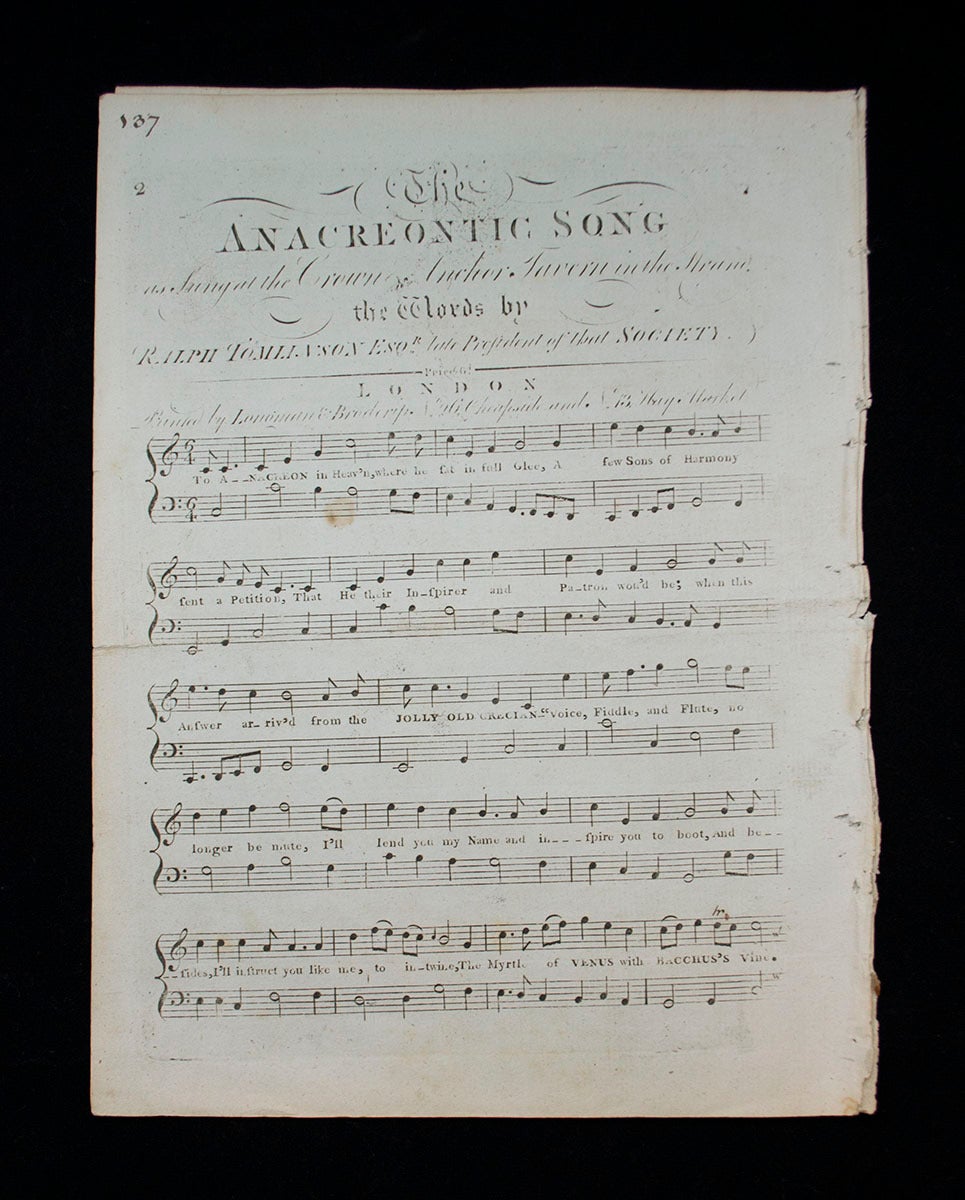 137
2
The
ANACREONTIC SONG
as Sung at the Crown & Anchor Tavern in the Strand,
the Words by
RALPH TOMLINSON ESQR. late President of that SOCIETY.
Price 6d
LONDON
Printed by Longman & Broderip No. 26 Cheapside and No. 13 Hay Market
To A--NACREON in Heav'n, where he sat in full Glee, A few Sons of Harmony
sent a Petition, That He their In-spirer and Pa-tron wou'd be; when this
Answer ar-riv'd from the JOLLY OLD GRECIAN "Voice, Fiddle, and Flute, no
longer be mute, I'll lend you my Name and in---spire you to boot, And be--
--sides, I'll instruct you like me, to in-twine, The Myrtle of VENUS with BACCHUS'S Vine.
tr